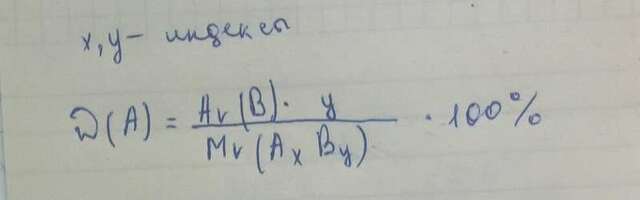 x, y - индексы
ω(A) = Ar(B) · y / Mr(Ax By) · 100%